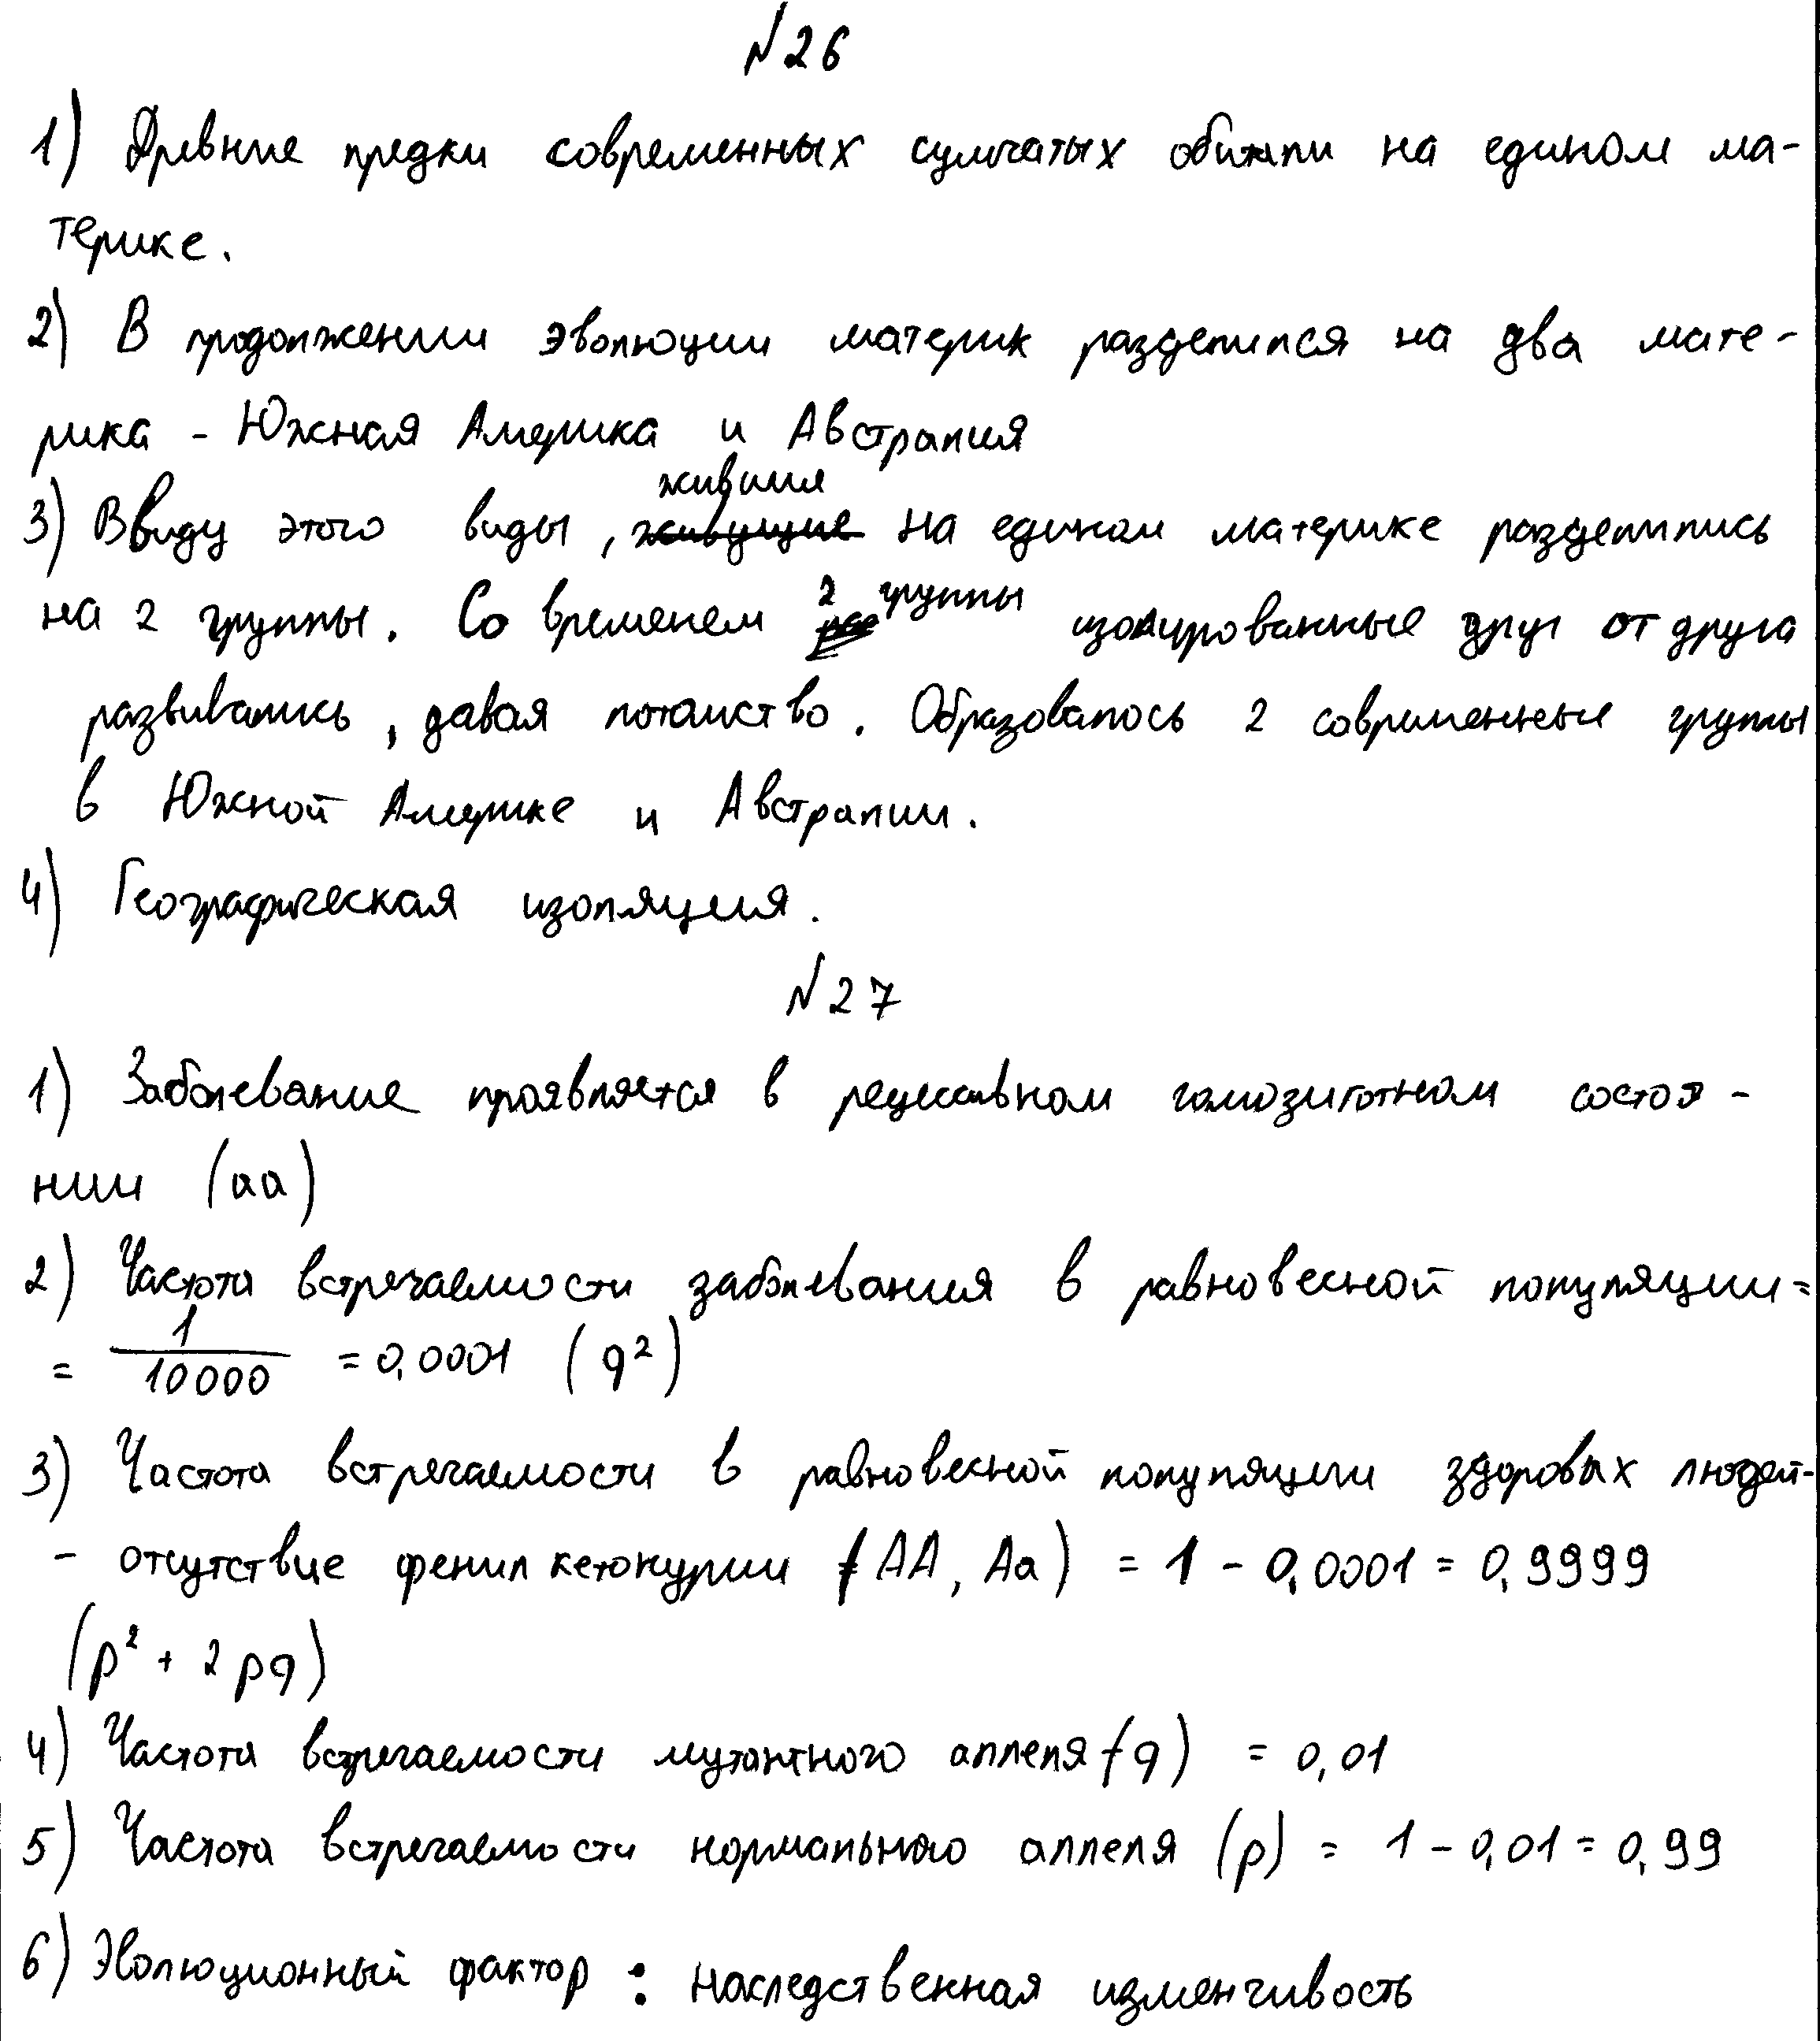 №26
1) Древние предки современных сумчатых обитали на едином ма-
терике.
2) В продолжении эволюции материк разделился на два мате-
рика - Южная Америка и Австралия
3) Ввиду этого виды, жившия на едином материке разделились
на 2 группы. Со временем 2 группы изолированные друг от друга
развивались, давая потомство. Образовалось 2 современные группы
в Южной Америке и Австралии.
4) Географическая изоляция.
№27
1) Заболевание проявляется в рецессивном гомозиготном состоя-
нии (aa)
2) Частота встречаемости заболевания в равновесной популяции=
= 1/10000 = 0,0001 (q²)
3) Частота встречаемости в равновесной популяции здоровых людей-
- отсутствие фенилкетонурии (AA, Aa) = 1 - 0,0001 = 0,9999
(p² + 2pq)
4) Частота встречаемости мутантного аллеля (q) = 0,01
5) Частота встречаемости нормального аллеля (p) = 1 - 0,01 = 0,99
6) Эволюционный фактор : наследственная изменчивость